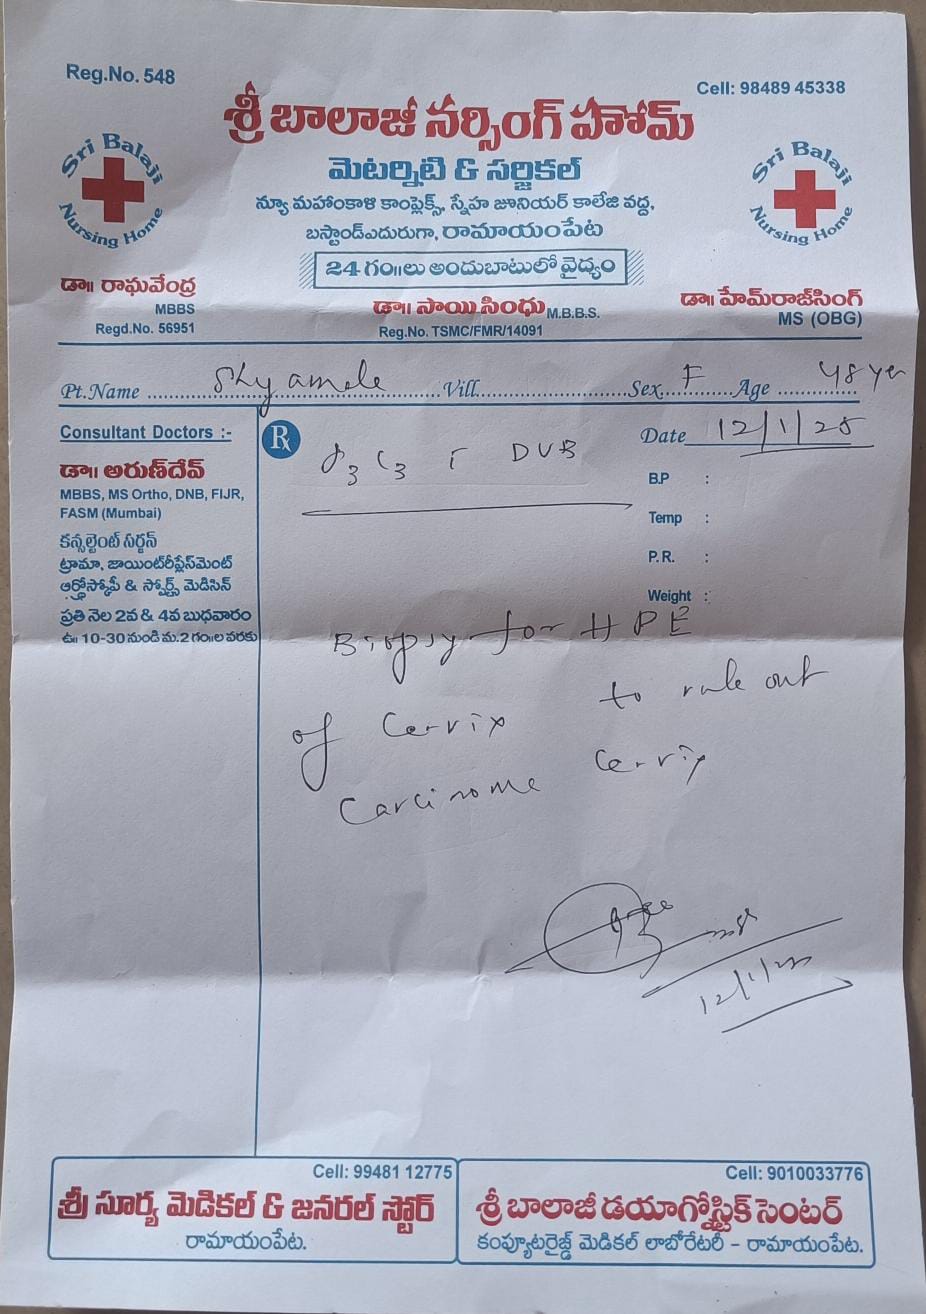 Reg.No. 548
Cell: 98489 45338
శ్రీ బాలాజీ నర్సింగ్ హోమ్
Sri Balaji Nursing Home
మెటర్నిటి & సర్జికల్
Sri Balaji Nursing Home
న్యూ మహాంకాళి కాంప్లెక్స్, స్నేహ జూనియర్ కాలేజి వద్ద,
బస్టాండ్ఎదురుగా, రామాయంపేట
24 గం॥లు అందుబాటులో వైద్యం
డా॥ రాఘవేంద్ర
MBBS
Regd.No. 56951
డా॥ సాయి సింధు M.B.B.S.
Reg.No. TSMC/FMR/14091
డా॥ హేమ్‌రాజ్‌సింగ్
MS (OBG)
Pt.Name Shyamale Vill. Sex. F Age 48 yer
Consultant Doctors :-
డా॥ అరుణ్‌దేవ్
MBBS, MS Ortho, DNB, FIJR,
FASM (Mumbai)
కన్సల్టెంట్ సర్జన్
ట్రామా, జాయింట్‌రీప్లేస్‌మెంట్
ఆర్థ్రోస్కోపీ & స్పోర్ట్స్ మెడిసిన్
ప్రతి నెల 2వ & 4వ బుధవారం
ఉ॥ 10-30 నుండి మ.2 గం॥ల వరకు
Rx
Date 12/1/25
P3 L3 DUB
B.P :
Temp :
P.R. :
Weight :
Biopsy for HPE
of Cervix to rule out
Carcinome Cervix
12/1/25
Cell: 99481 12775
శ్రీ సూర్య మెడికల్ & జనరల్ స్టోర్
రామాయంపేట.
Cell: 9010033776
శ్రీ బాలాజీ డయాగ్నోస్టిక్ సెంటర్
కంప్యూటరైజ్డ్ మెడికల్ లాబోరేటరీ - రామాయంపేట.